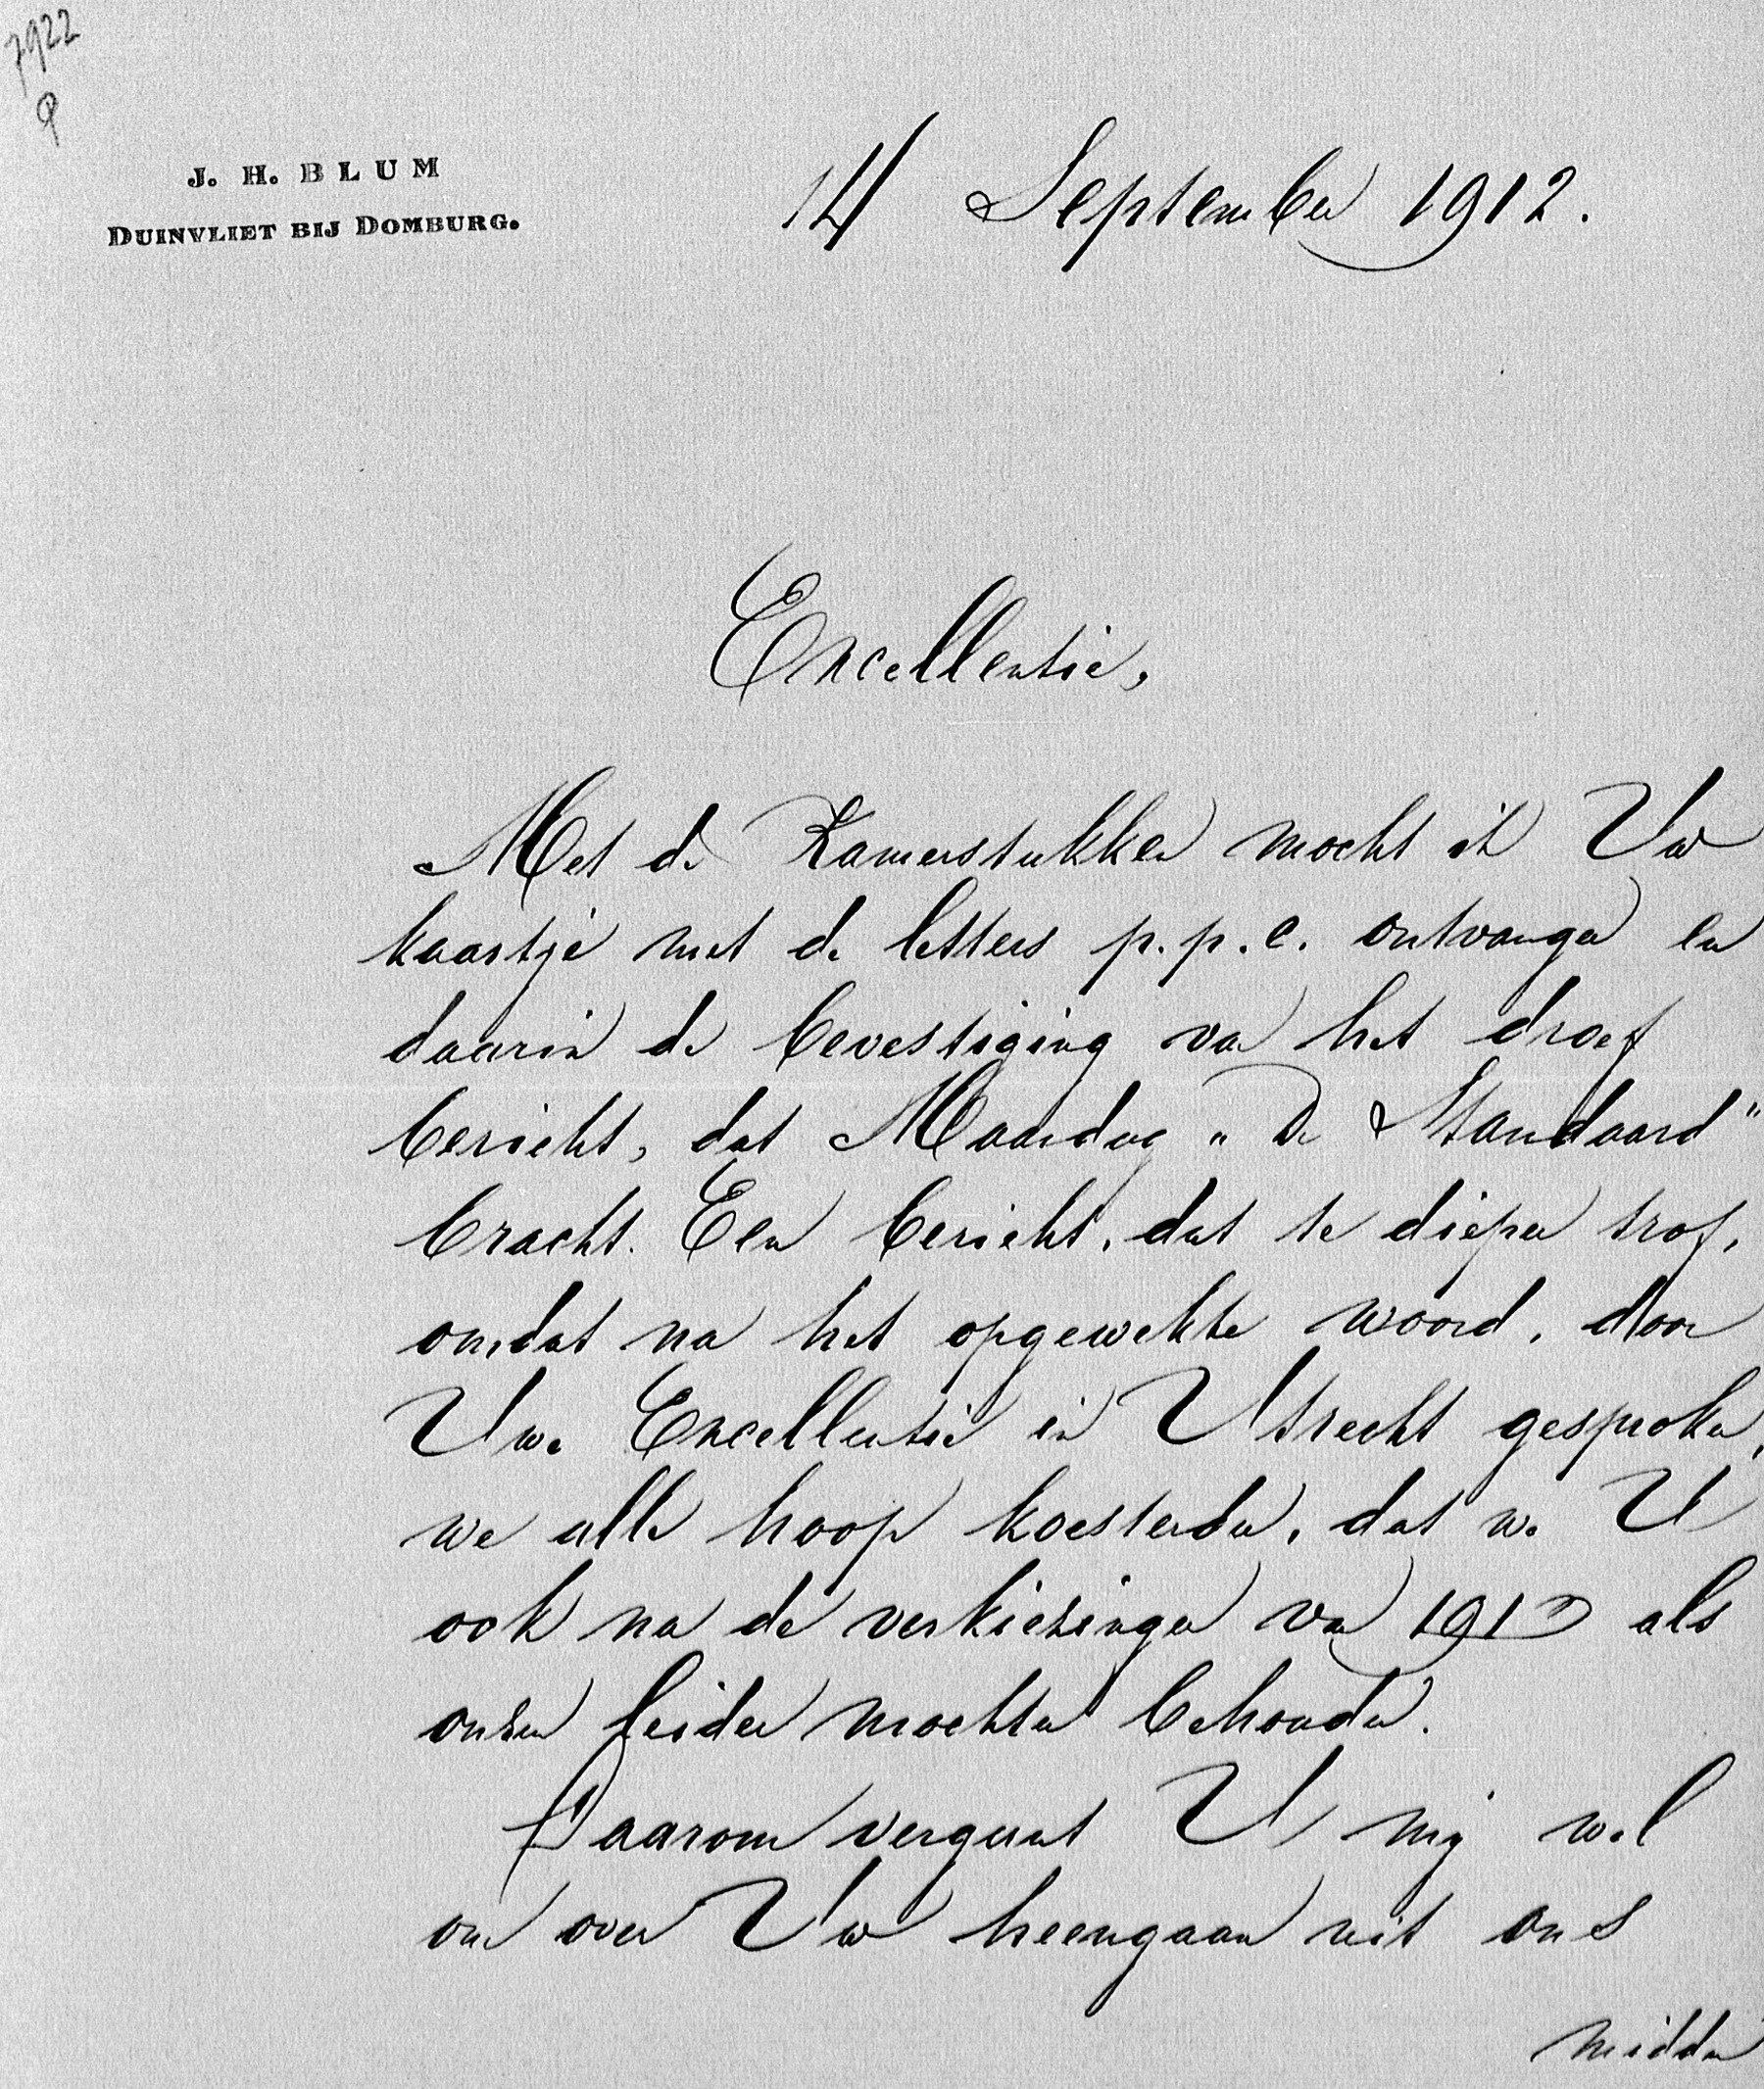 7922
J. H. BLUM
DUINVLIET BIJ DOMBURG.
14 September 1912.
Excellentie,
Met de Kamerstukken mocht ik Uw
kaartje met de letters p.p.c. ontvangen en
daarin de bevestiging van het droef
bericht, dat Maandag „De Standaard"
bracht. Een bericht, dat te dieper trof,
omdat na het opgewekte woord, door
Uwe Excellentie in Utrecht gesproken,
we alle hoop koesterden, dat we U
ook na de verkiezingen van 1913 als
onzen leider mochten behouden.
Daarom vergunt U mij wel
om over Uw heengaan uit ons
midden